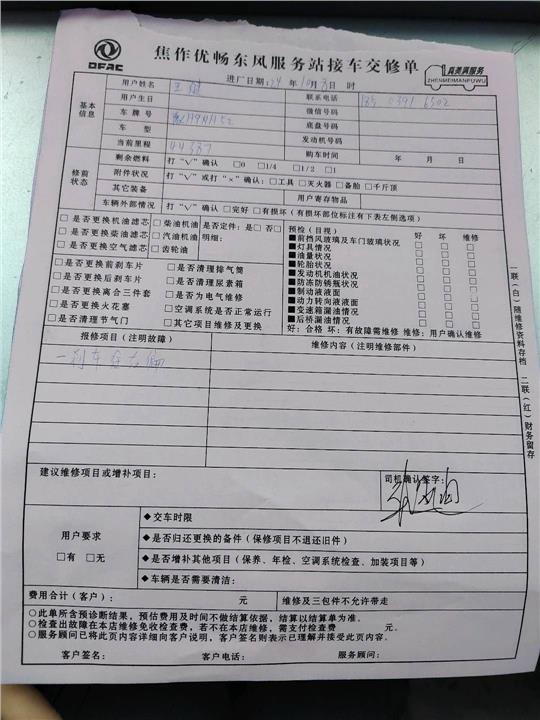 DFAC
焦作优畅东风服务站接车交修单
真美满服务
ZHENMEIMANFUWU
进厂日期: 24 年 10月 3日 时
基本信息
用户姓名 联系电话 185 0391 6502
用户生日 微信号码
车牌号 底盘号码
车型 发动机号码
当前里程 44387 购车时间 年 月 日
修前状态
剩余燃料 打“√”确认 □0 □1/4 □1/2 □1
附件状况 打“√”或打“×”确认:□工具 □灭火器 □备胎 □千斤顶
其它装备 用户寄存物品
车辆外部情况 打“√”确认 □完好 □有损坏(有损坏部位标注有下表左侧选项)
□是否更换机油滤芯 □柴油机油 是否定件: 是□ 否□
□是否更换柴油滤芯 □汽油机油 明细:
□是否更换空气滤芯 □齿轮油
□是否更换前刹车片 □是否清理排气筒
□是否更换后刹车片 □是否清理尿素箱
□是否更换离合三件套 □是否为电气维修
□是否更换火花塞 □空调系统是否正常运行
□是否清理节气门 □其它项目维修及更换
预检(目视) 好 坏 维修
■前挡风玻璃及车门玻璃状况 □ □ □
■灯具情况 □ □ □
■油量状况 □ □ □
■轮胎状况 □ □ □
■发动机机油状况 □ □ □
■防冻防锈瓶状况 □ □ □
■制动液液面 □ □ □
■动力转向液液面 □ □ □
■变速箱漏油情况 □ □ □
■后桥漏油情况 □ □ □
好: 合格 坏: 有故障需维修 维修: 用户确认维修
报修项目(注明故障) 维修内容(注明维修部件)
一刹车
建议维修项目或增补项目:
司机确认签字:
用户要求
□有 □无
◆交车时限
◆是否归还更换的备件(保修项目不退还旧件)
◆是否增补其他项目(保养、年检、空调系统检查、加装项目等)
◆车辆是否需要清洁:
费用合计(客户): 元 维修及三包件不允许带走
○此单所含预诊断结果,预估费用及时间不做结算依据,结算以结算单为准。
○检查出故障在本店维修免收检查费,若不在本店维修,需支付检查费 元。
○服务顾问已将此页内容详细向客户说明,客户签名则表示已理解并接受此页内容。
客户签名: 客户电话: 服务顾问:
一联(白)随维修资料存档 二联(红)财务留存